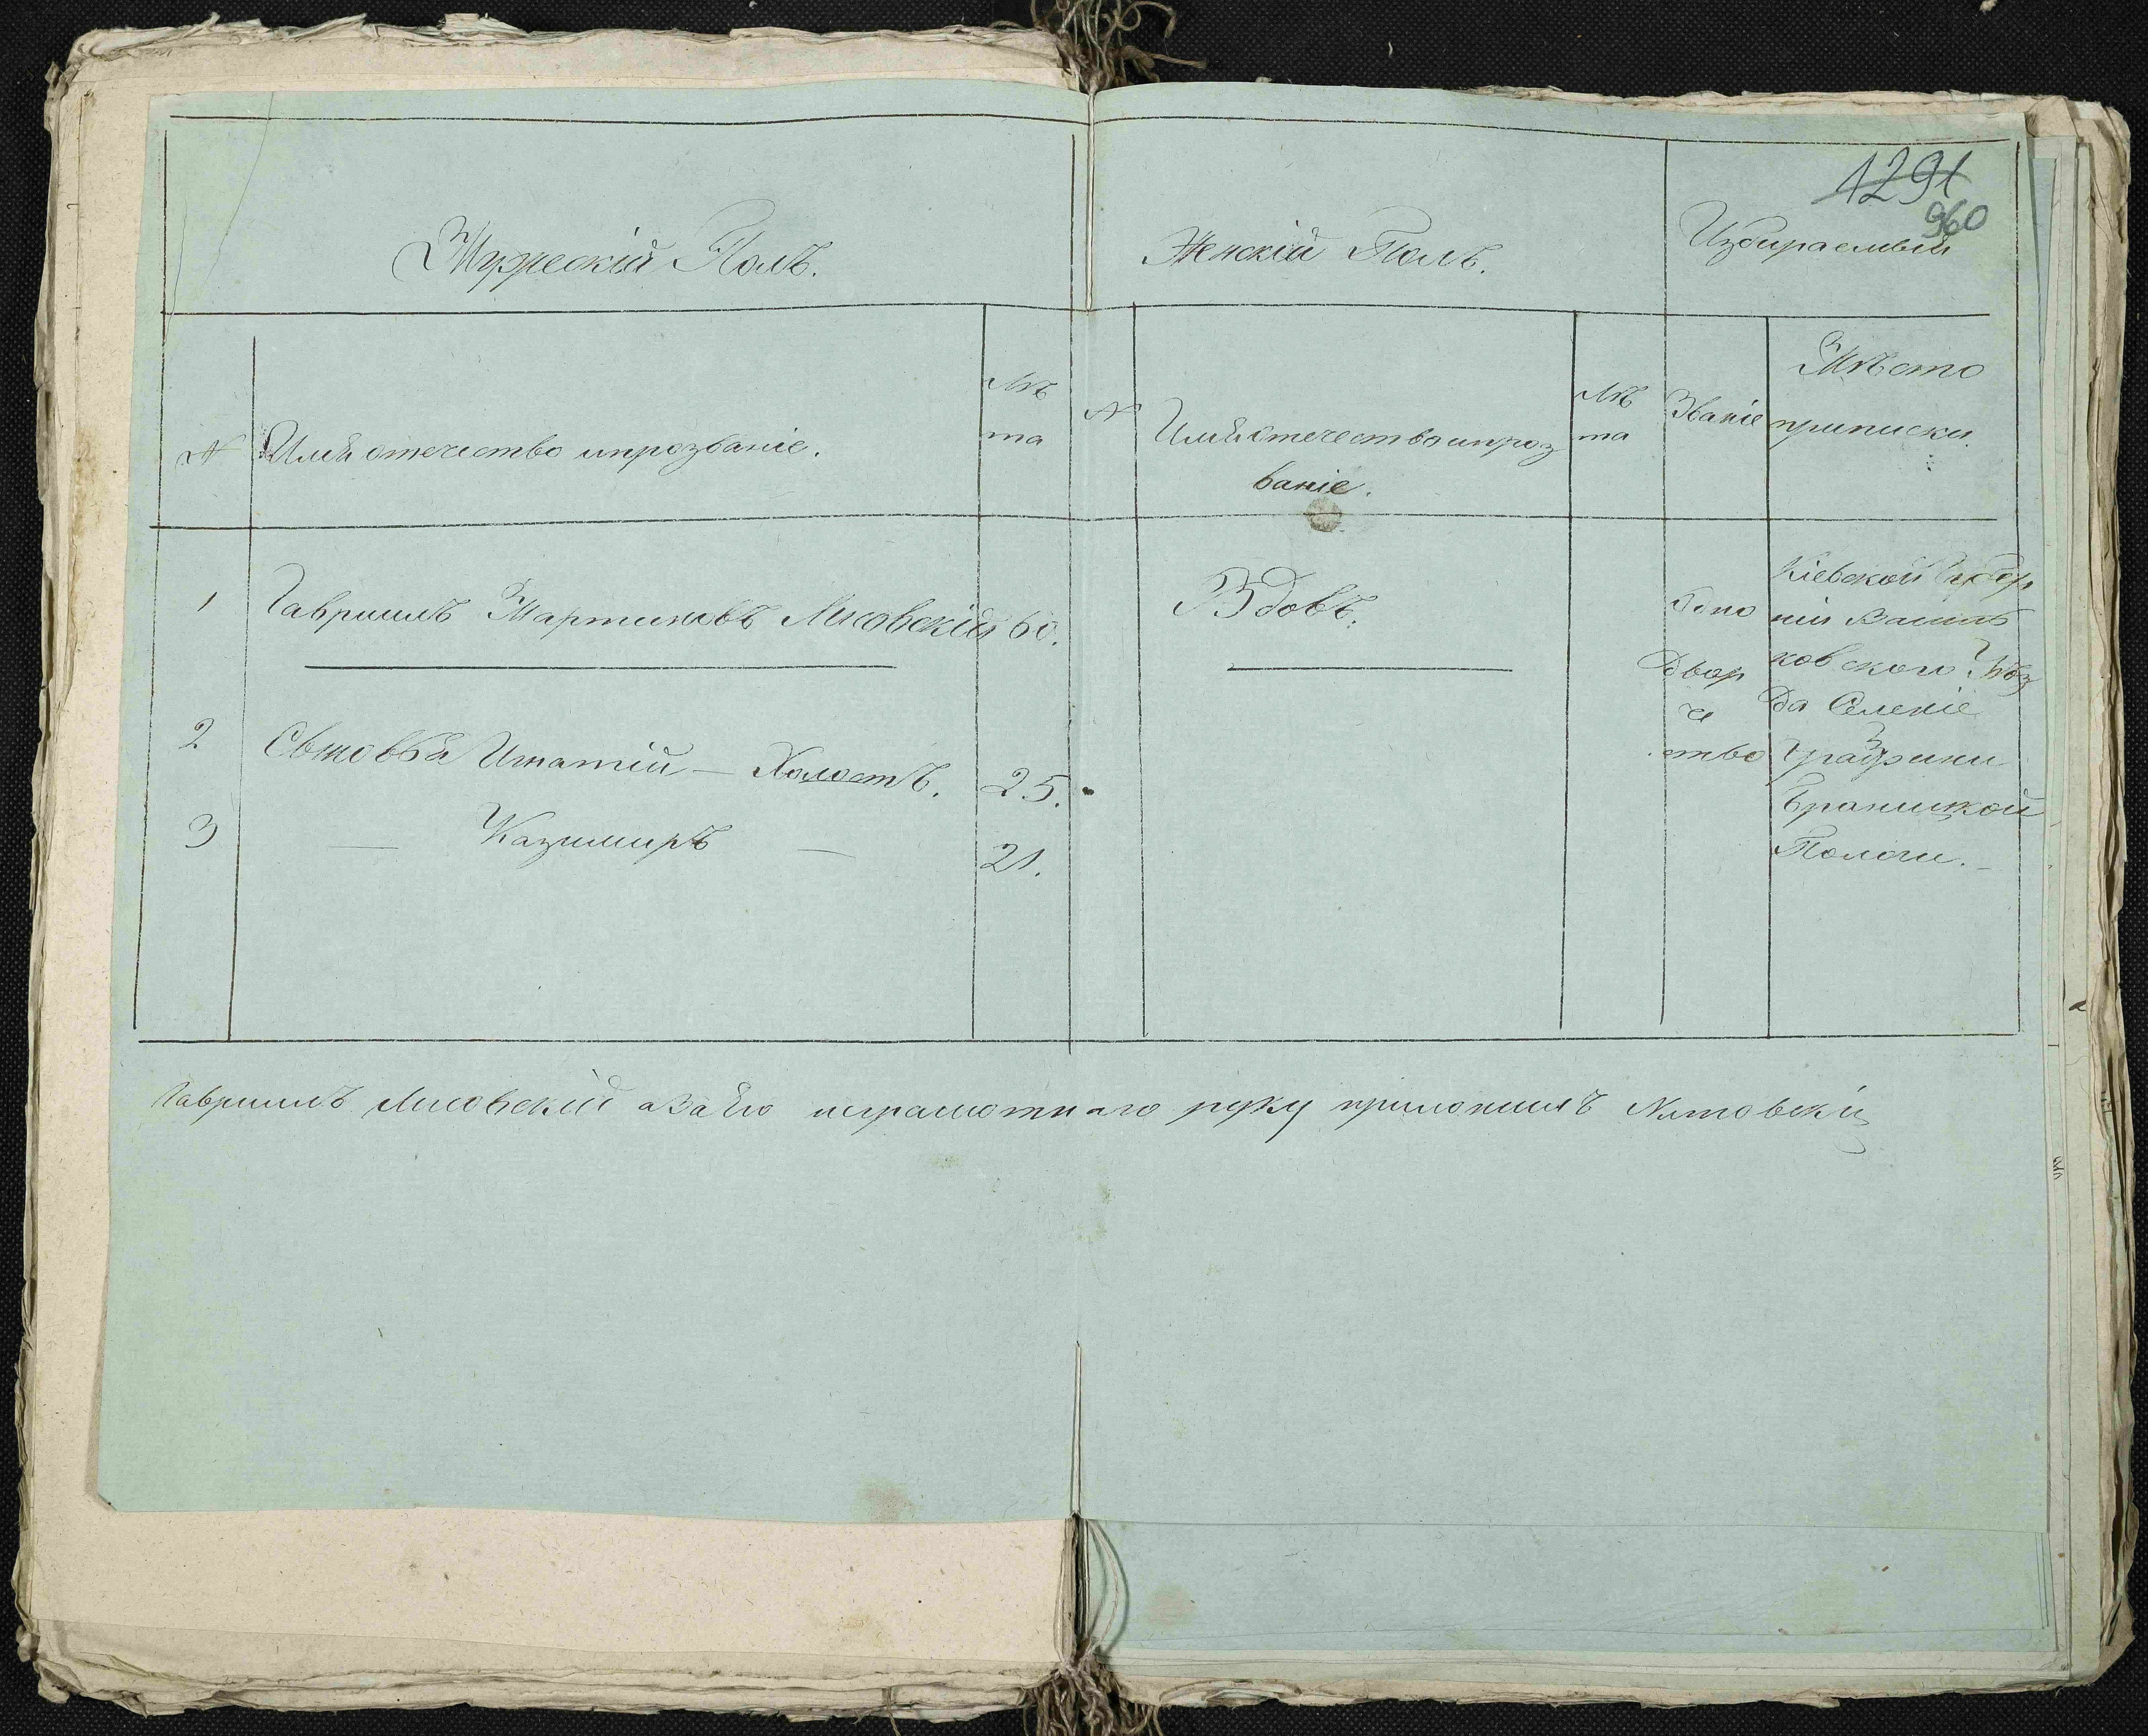 1291
960
Мужескій Полъ.
Женскій Полъ.
Избираемый
N
Имя отечество и прозваніе.
Лѣ
та
N
Имя отечество и проз
ваніе.
Лѣ
та
Званіе
Мѣсто
приписки.
1
Гаврiилъ Мартиновъ Лисовскій
60.
Вдовъ.
Одно
двор
че
ство
Кіевской Губер
ніи Василь
ковского Уѣз
да Селеніе
Графини
Браницкой
Пологи.
2
Сыновья Игнатій — Холостъ.
25.
3
— Казимиръ —
21.
Гавриилъ Лисовскій а за Его неграмотного руку приложилъ